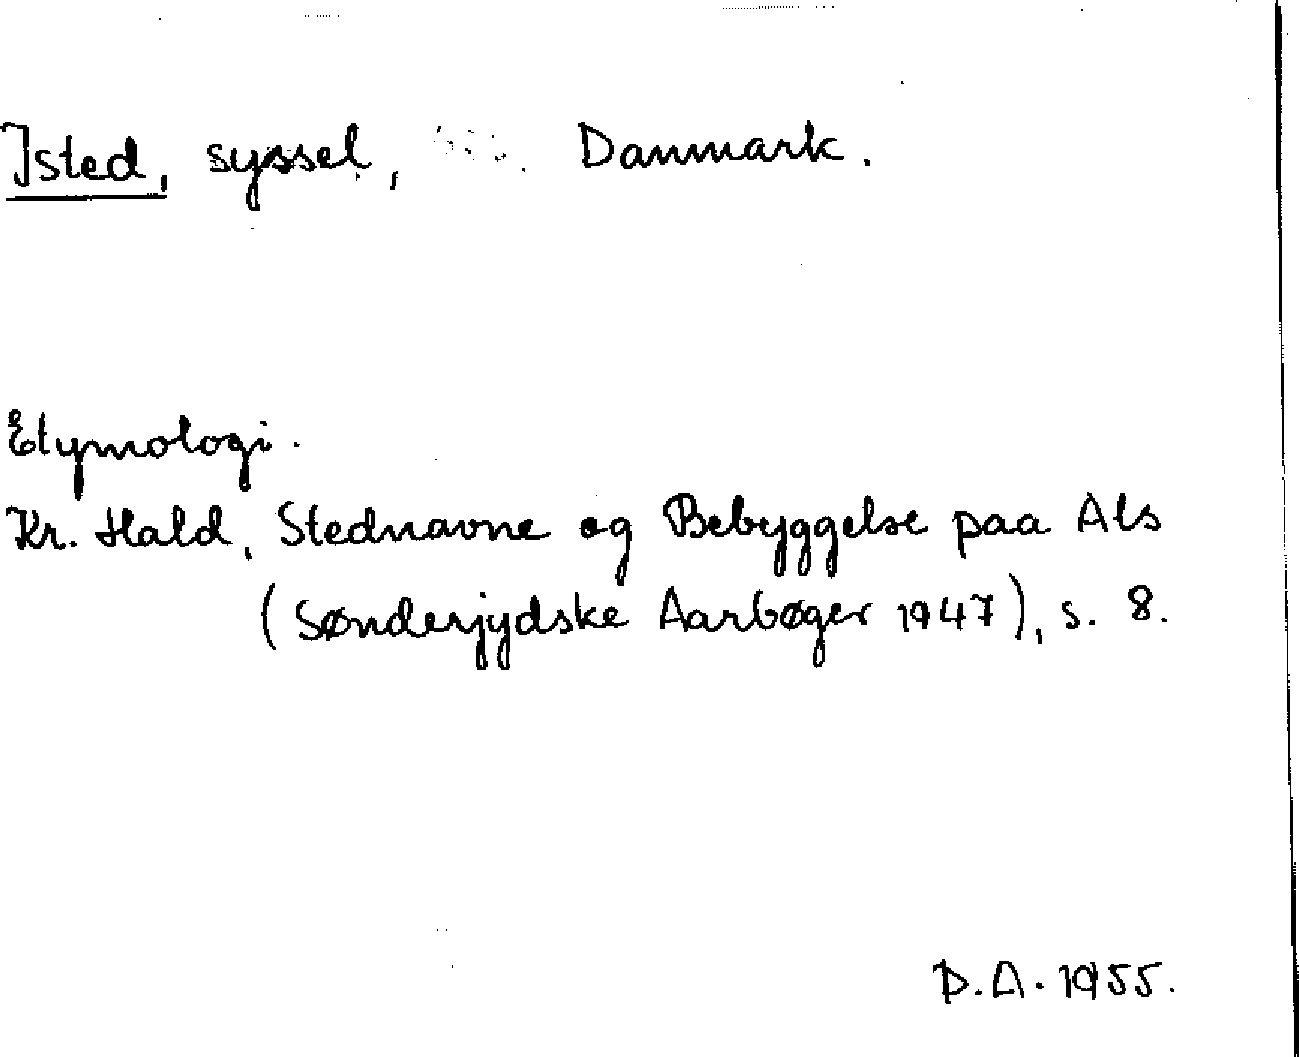 Isted, syssel, Danmark.
Etymologi.
Kr. Hald, Stednavne og Bebyggelse paa Als
(Sønderjydske Aarbøger 1947), s. 8.
D.A. 1955.